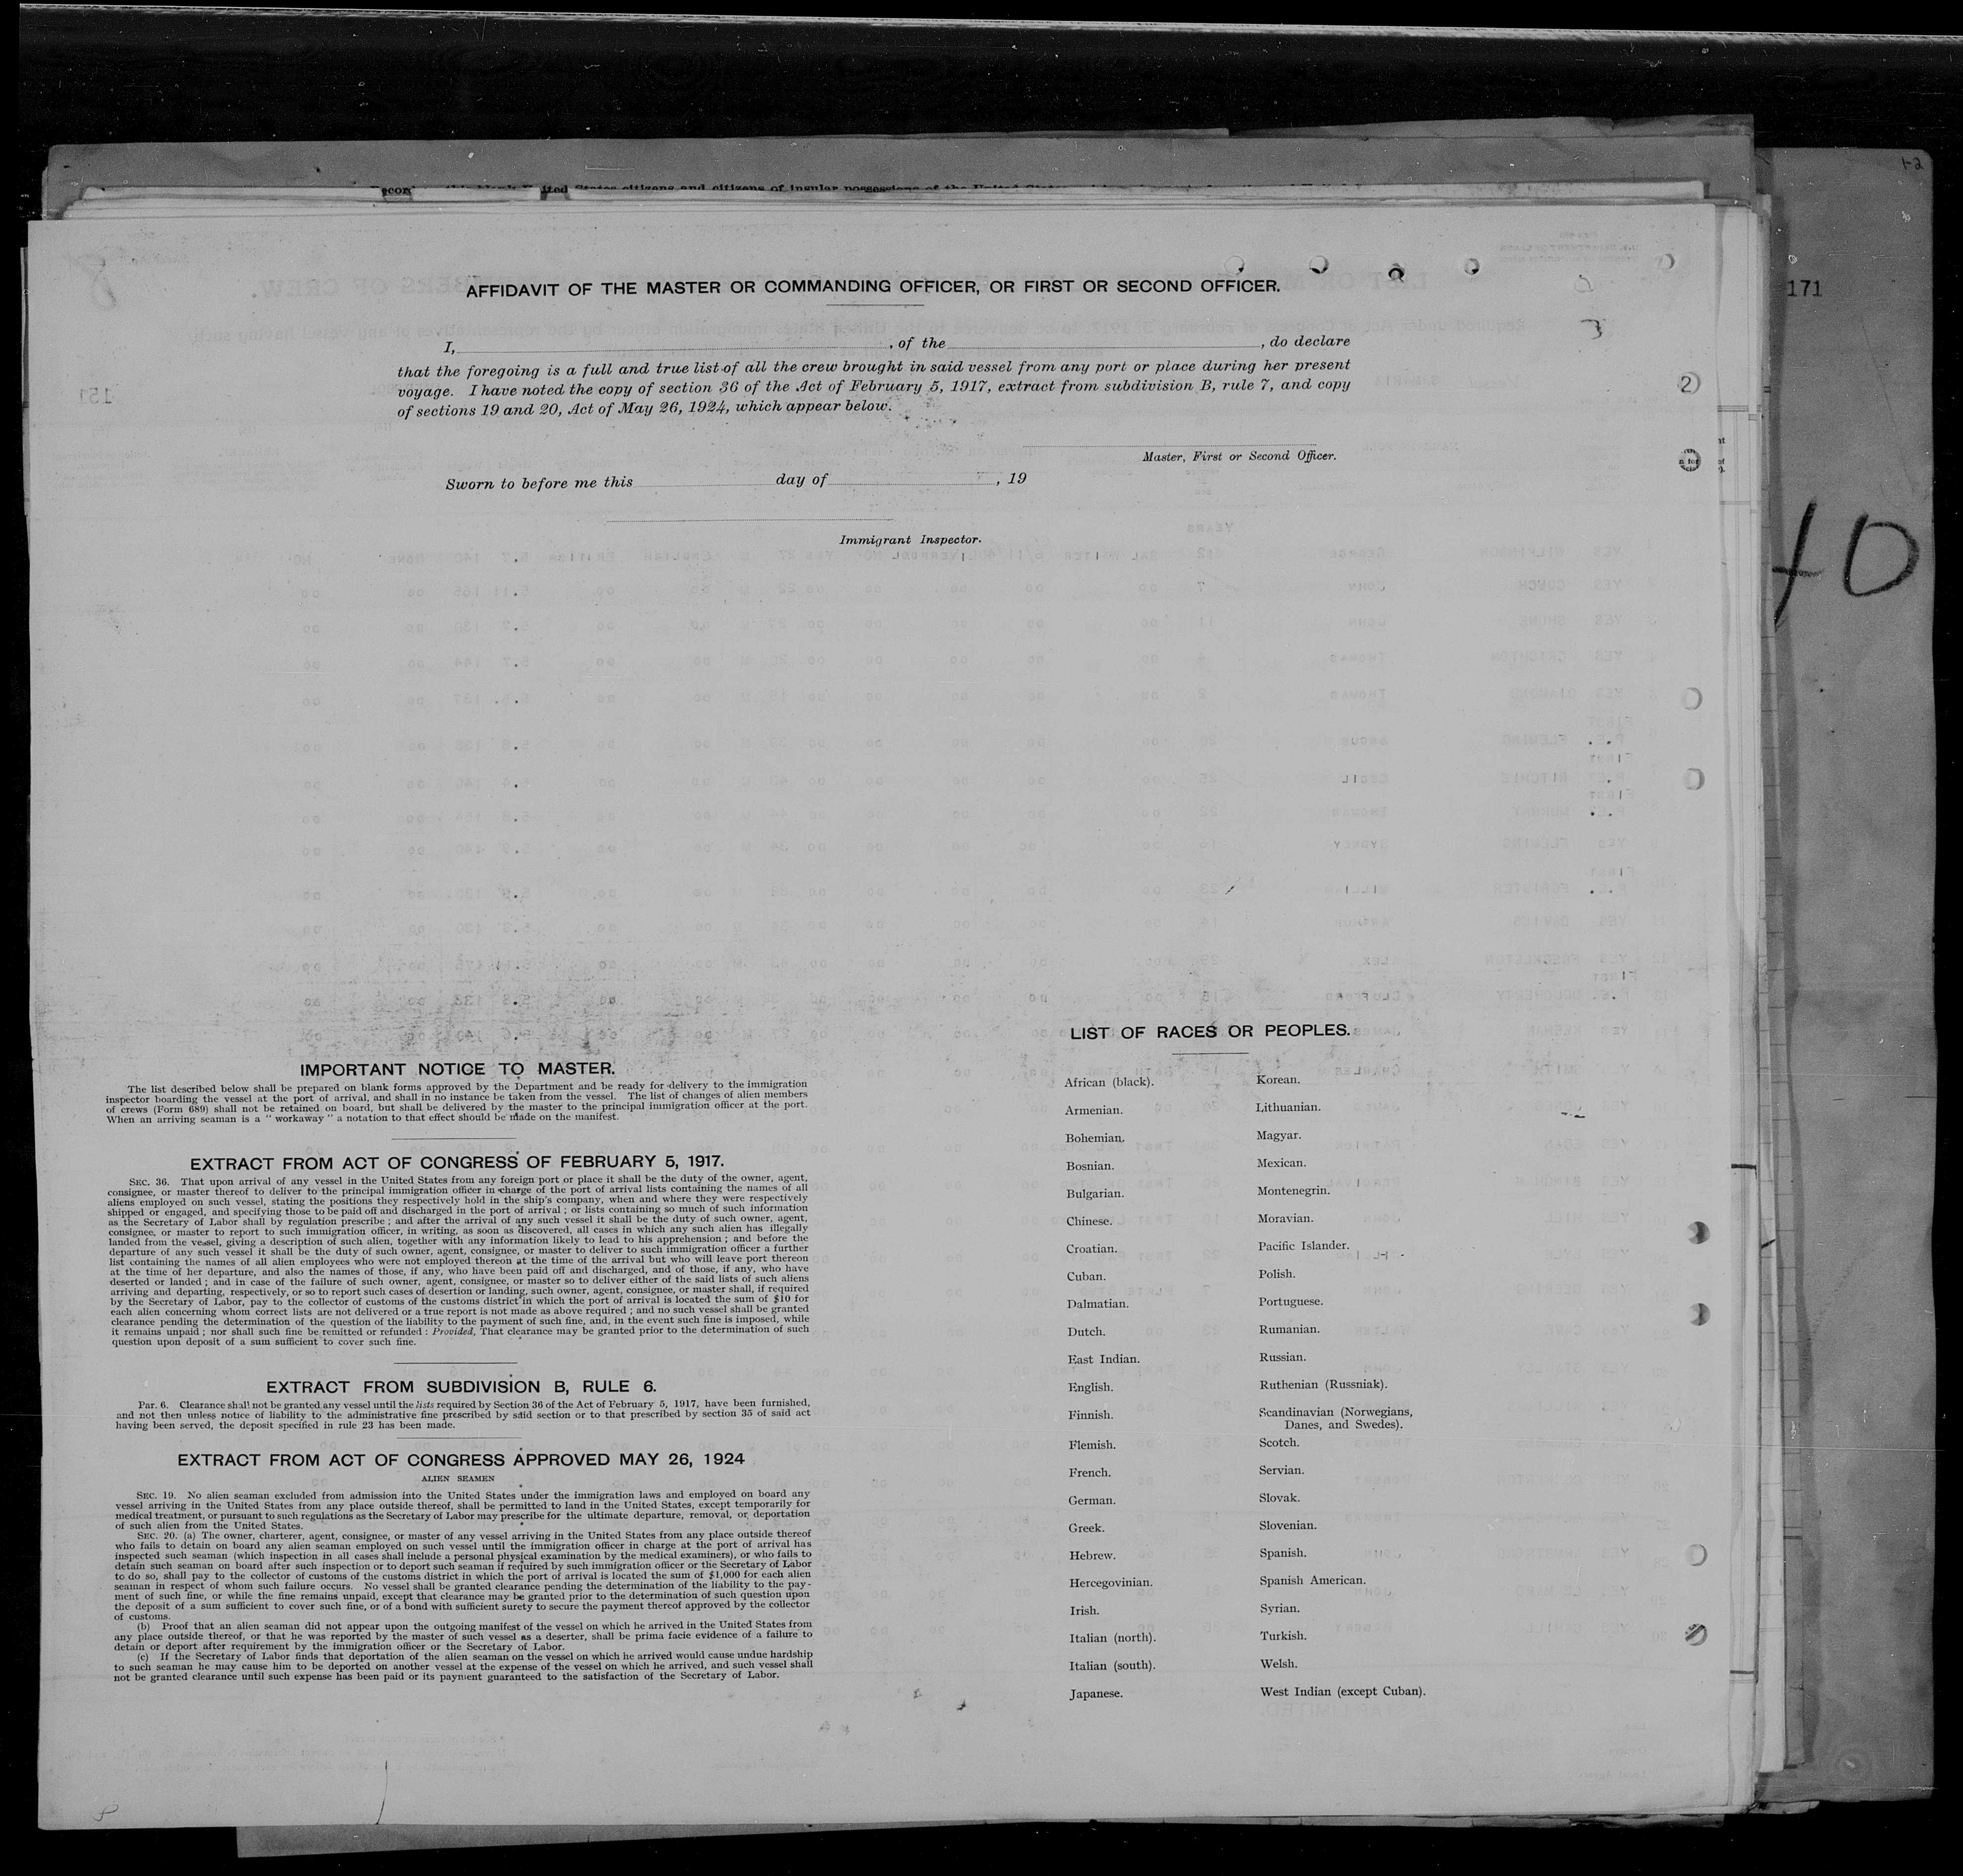 1-2
171
AFFIDAVIT OF THE MASTER OR COMMANDING OFFICER, OR FIRST OR SECOND OFFICER.
I, , of the , do declare
that the foregoing is a full and true list of all the crew brought in said vessel from any port or place during her present
voyage. I have noted the copy of section 36 of the Act of February 5, 1917, extract from subdivision B, rule 7, and copy
of sections 19 and 20, Act of May 26, 1924, which appear below.
2
Master, First or Second Officer.
Sworn to before me this day of , 19
Immigrant Inspector.
10
IMPORTANT NOTICE TO MASTER.
The list described below shall be prepared on blank forms approved by the Department and be ready for delivery to the immigration
inspector boarding the vessel at the port of arrival, and shall in no instance be taken from the vessel. The list of changes of alien members
of crews (Form 689) shall not be retained on board, but shall be delivered by the master to the principal immigration officer at the port.
When an arriving seaman is a " workaway " a notation to that effect should be made on the manifest.
EXTRACT FROM ACT OF CONGRESS OF FEBRUARY 5, 1917.
SEC. 36. That upon arrival of any vessel in the United States from any foreign port or place it shall be the duty of the owner, agent,
consignee, or master thereof to deliver to the principal immigration officer in charge of the port of arrival lists containing the names of all
aliens employed on such vessel, stating the positions they respectively hold in the ship's company, when and where they were respectively
shipped or engaged, and specifying those to be paid off and discharged in the port of arrival ; or lists containing so much of such information
as the Secretary of Labor shall by regulation prescribe ; and after the arrival of any such vessel it shall be the duty of such owner, agent,
consignee, or master to report to such immigration officer, in writing, as soon as discovered, all cases in which any such alien has illegally
landed from the vessel, giving a description of such alien, together with any information likely to lead to his apprehension ; and before the
departure of any such vessel it shall be the duty of such owner, agent, consignee, or master to deliver to such immigration officer a further
list containing the names of all alien employees who were not employed thereon at the time of the arrival but who will leave port thereon
at the time of her departure, and also the names of those, if any, who have been paid off and discharged, and of those, if any, who have
deserted or landed ; and in case of the failure of such owner, agent, consignee, or master so to deliver either of the said lists of such aliens
arriving and departing, respectively, or so to report such cases of desertion or landing, such owner, agent, consignee, or master shall, if required
by the Secretary of Labor, pay to the collector of customs of the customs district in which the port of arrival is located the sum of $10 for
each alien concerning whom correct lists are not delivered or a true report is not made as above required ; and no such vessel shall be granted
clearance pending the determination of the question of the liability to the payment of such fine, and, in the event such fine is imposed, while
it remains unpaid ; nor shall such fine be remitted or refunded : Provided, That clearance may be granted prior to the determination of such
question upon deposit of a sum sufficient to cover such fine.
EXTRACT FROM SUBDIVISION B, RULE 6.
Par. 6. Clearance shall not be granted any vessel until the lists required by Section 36 of the Act of February 5, 1917, have been furnished,
and not then unless notice of liability to the administrative fine prescribed by said section or to that prescribed by section 35 of said act
having been served, the deposit specified in rule 23 has been made.
EXTRACT FROM ACT OF CONGRESS APPROVED MAY 26, 1924
ALIEN SEAMEN
SEC. 19. No alien seaman excluded from admission into the United States under the immigration laws and employed on board any
vessel arriving in the United States from any place outside thereof, shall be permitted to land in the United States, except temporarily for
medical treatment, or pursuant to such regulations as the Secretary of Labor may prescribe for the ultimate departure, removal, or deportation
of such alien from the United States.
SEC. 20. (a) The owner, charterer, agent, consignee, or master of any vessel arriving in the United States from any place outside thereof
who fails to detain on board any alien seaman employed on such vessel until the immigration officer in charge at the port of arrival has
inspected such seaman (which inspection in all cases shall include a personal physical examination by the medical examiners), or who fails to
detain such seaman on board after such inspection or to deport such seaman if required by such immigration officer or the Secretary of Labor
to do so, shall pay to the collector of customs of the customs district in which the port of arrival is located the sum of $1,000 for each alien
seaman in respect of whom such failure occurs. No vessel shall be granted clearance pending the determination of the liability to the pay-
ment of such fine, or while the fine remains unpaid, except that clearance may be granted prior to the determination of such question upon
the deposit of a sum sufficient to cover such fine, or of a bond with sufficient surety to secure the payment thereof approved by the collector
of customs.
(b) Proof that an alien seaman did not appear upon the outgoing manifest of the vessel on which he arrived in the United States from
any place outside thereof, or that he was reported by the master of such vessel as a deserter, shall be prima facie evidence of a failure to
detain or deport after requirement by the immigration officer or the Secretary of Labor.
(c) If the Secretary of Labor finds that deportation of the alien seaman on the vessel on which he arrived would cause undue hardship
to such seaman he may cause him to be deported on another vessel at the expense of the vessel on which he arrived, and such vessel shall
not be granted clearance until such expense has been paid or its payment guaranteed to the satisfaction of the Secretary of Labor.
LIST OF RACES OR PEOPLES.
African (black).
Armenian.
Bohemian.
Bosnian.
Bulgarian.
Chinese.
Croatian.
Cuban.
Dalmatian.
Dutch.
East Indian.
English.
Finnish.
Flemish.
French.
German.
Greek.
Hebrew.
Hercegovinian.
Irish.
Italian (north).
Italian (south).
Japanese.
Korean.
Lithuanian.
Magyar.
Mexican.
Montenegrin.
Moravian.
Pacific Islander.
Polish.
Portuguese.
Rumanian.
Russian.
Ruthenian (Russniak).
Scandinavian (Norwegians,
Danes, and Swedes).
Scotch.
Servian.
Slovak.
Slovenian.
Spanish.
Spanish American.
Syrian.
Turkish.
Welsh.
West Indian (except Cuban).